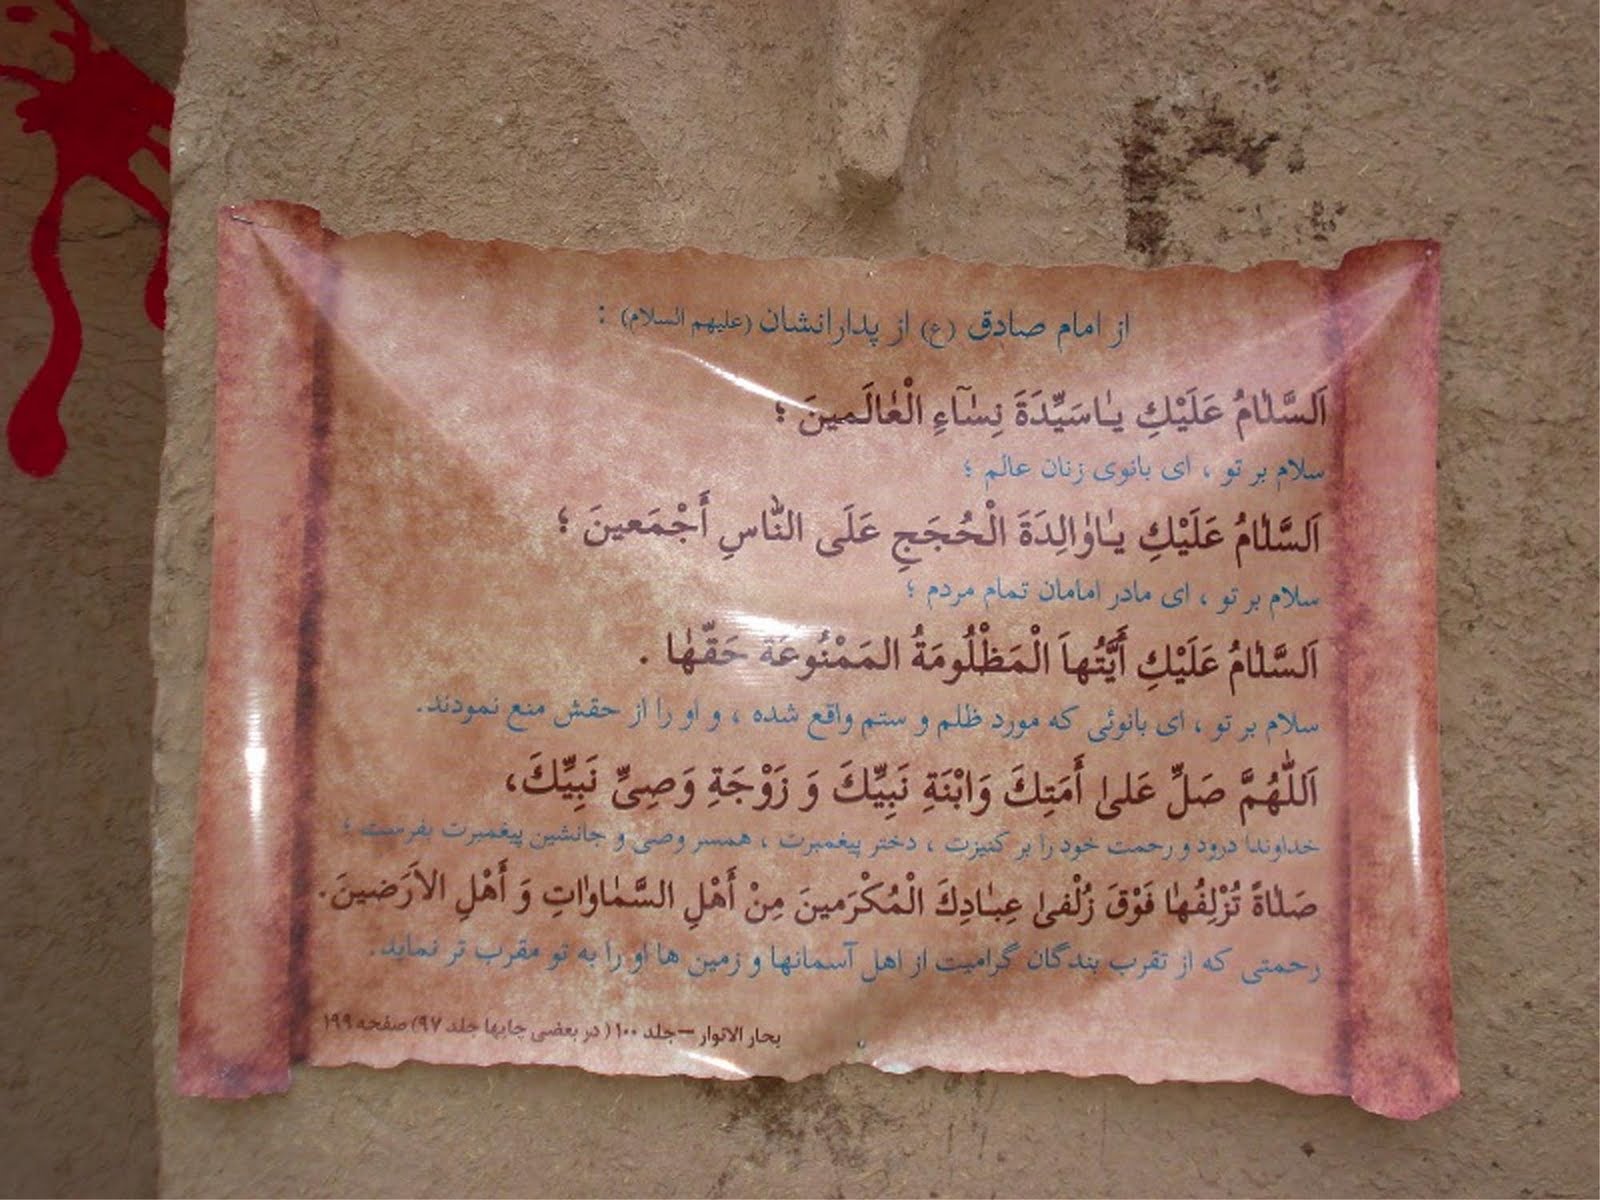 از امام صادق (ع) از پدارانشان (علیهم السلام) :
اَلسَّلٰامُ عَلَیْكِ یٰاسَیِّدَةَ نِسٰآءِ الْعٰالَمینَ ؛
سلام بر تو ، ای بانوی زنان عالم ؛
اَلسَّلٰامُ عَلَیْكِ یٰاوٰالِدَةَ الْحُجَجِ عَلَی النّٰاسِ أَجْمَعینَ ؛
سلام بر تو ، ای مادر امامان تمام مردم ؛
اَلسَّلٰامُ عَلَیْكِ أَیَّتُهاَ الْمَظْلُومَةُ المَمْنُوعَةُ حَقّهٰا .
سلام بر تو ، ای بانوئی که مورد ظلم و ستم واقع شده ، و او را از حقش منع نمودند.
اَللّٰهُمَّ صَلِّ عَلیٰ أَمَتِكَ وَابْنَةِ نَبِیِّكَ وَ زَوْجَةِ وَصِیِّ نَبِیِّكَ،
خداوندا درود و رحمت خود را بر کنیزت ، دختر پیغمبرت ، همسر وصی و جانشین پیغمبرت بفرست ؛
صَلٰاةً تُزْلِفُهٰا فَوْقَ زُلْفیٰ عِبٰادِكَ الْمُكْرَمینَ مِنْ أَهْلِ السَّمٰاوٰاتِ وَ أَهْلِ الاَرَضینَ.
رحمتی که از تقرب بندگان گرامیت از اهل آسمانها و زمین ها او را به تو مقرب تر نماید.
بحار الانوار – جلد ۱۰۰ ( در بعضی چاپها جلد ۹۷) صفحه ۱۹۹